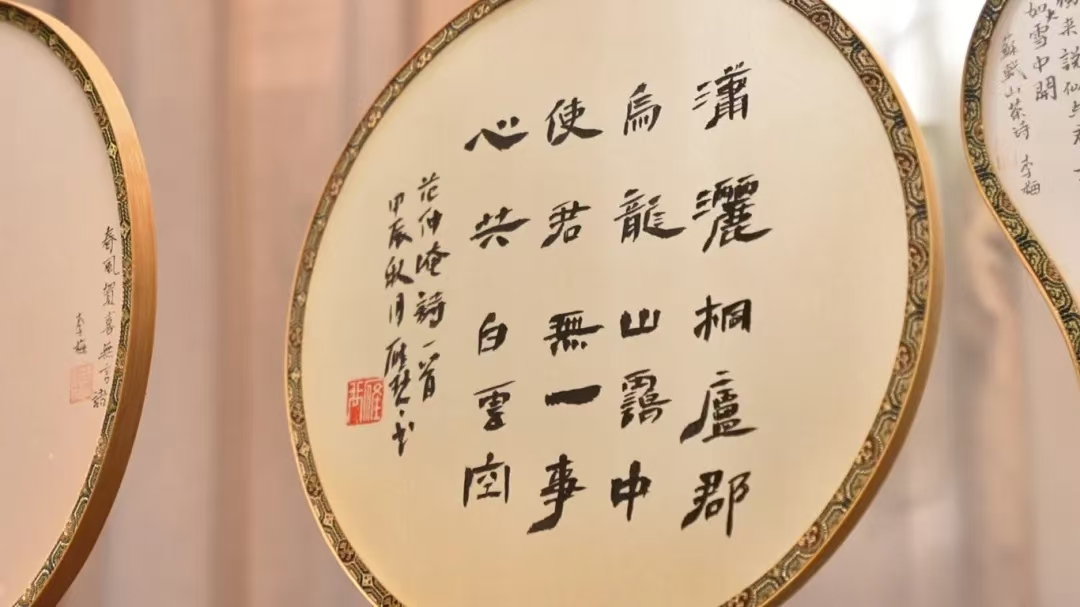 獨來說似與君
如火雪中開
蘇軾山茶詩 李梅
瀟灑桐廬郡
烏龍山靄中
使君無一事
心共白雲空
范仲淹詩一首
甲辰秋月
春風賀喜無言語
李梅